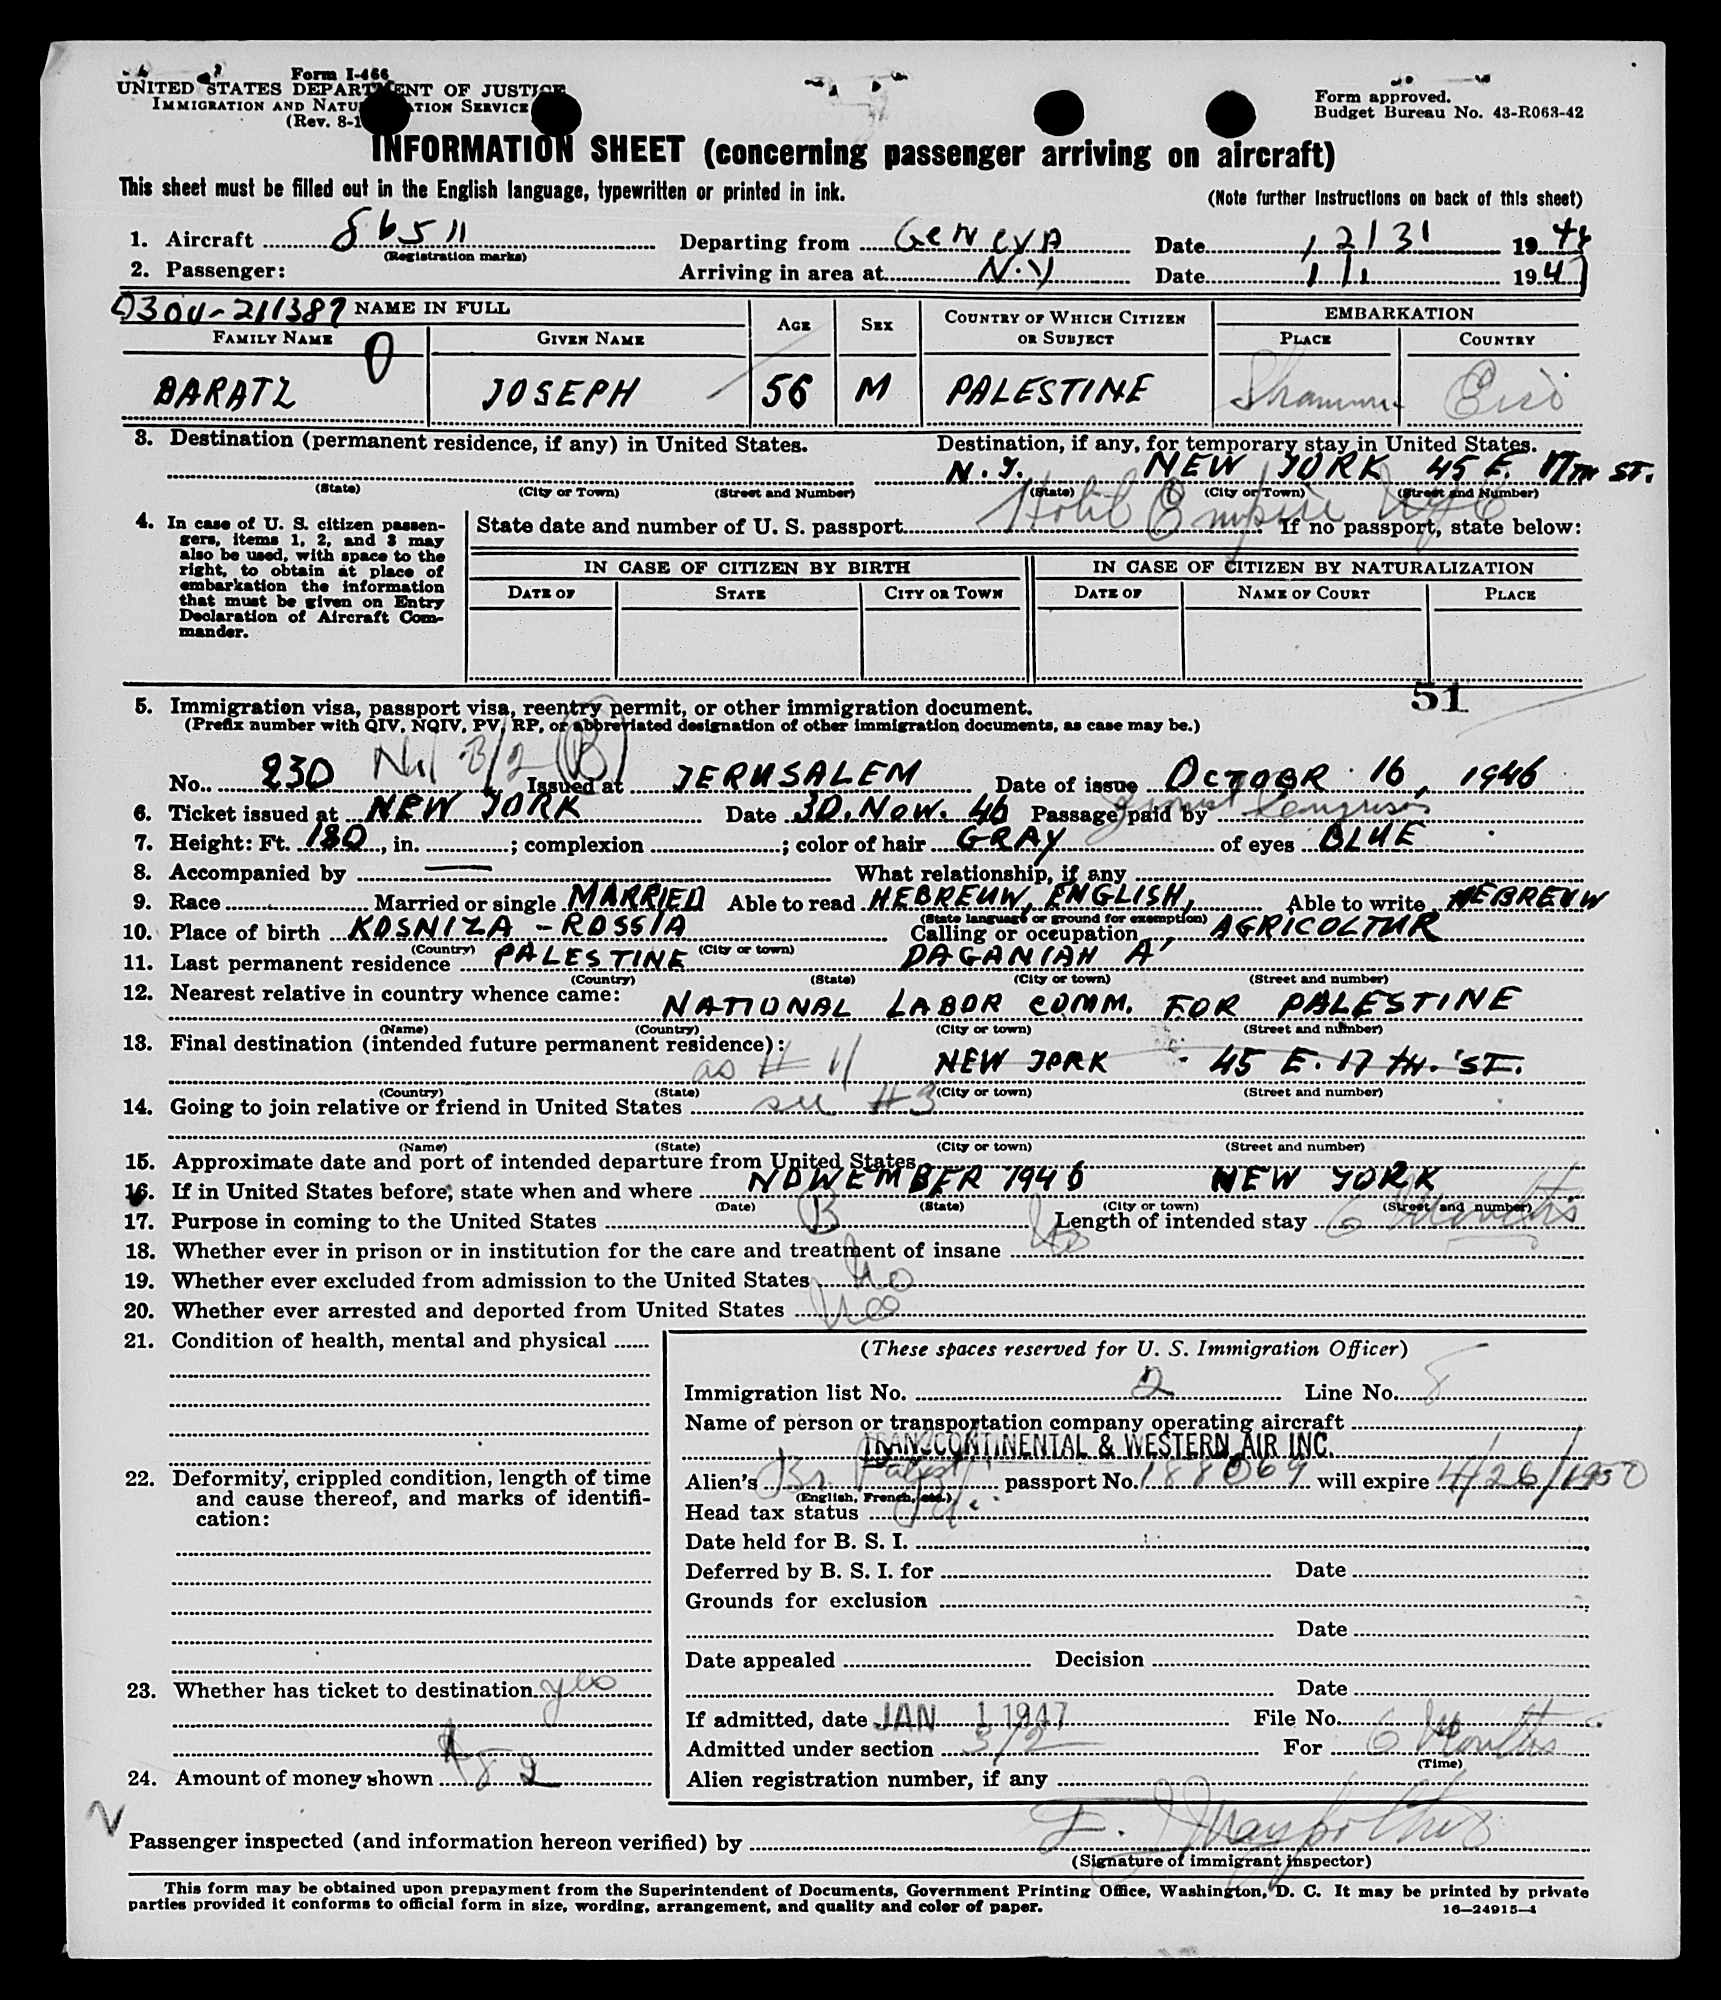 Form I-466
UNITED STATES DEPARTMENT OF JUSTICE
IMMIGRATION AND NATURALIZATION SERVICE
(Rev. 8-1
Form approved.
Budget Bureau No. 43-R063-42
INFORMATION SHEET (concerning passenger arriving on aircraft)
This sheet must be filled out in the English language, typewritten or printed in ink.
(Note further instructions on back of this sheet)
1. Aircraft 86511 Departing from GENEVA Date 12/31 1946
(Registration marks)
2. Passenger: Arriving in area at N.Y Date 1/1 1947
0300-211387 NAME IN FULL AGE SEX COUNTRY OF WHICH CITIZEN OR SUBJECT EMBARKATION
FAMILY NAME GIVEN NAME PLACE COUNTRY
BARATZ JOSEPH 56 M PALESTINE Shannon Eire
3. Destination (permanent residence, if any) in United States. Destination, if any, for temporary stay in United States.
N.Y. NEW YORK 45 E. 17TH ST.
(State) (City or Town) (Street and Number) (State) (City or Town) (Street and Number)
Hotel Empire NYC
4. In case of U. S. citizen passengers, items 1, 2, and 3 may also be used, with space to the right, to obtain at place of embarkation the information that must be given on Entry Declaration of Aircraft Commander.
State date and number of U. S. passport If no passport, state below:
IN CASE OF CITIZEN BY BIRTH IN CASE OF CITIZEN BY NATURALIZATION
DATE OF STATE CITY OR TOWN DATE OF NAME OF COURT PLACE
51
5. Immigration visa, passport visa, reentry permit, or other immigration document.
(Prefix number with QIV, NQIV, PV, RP, or abbreviated designation of other immigration documents, as case may be.)
No. 230 3/2 (B) Issued at JERUSALEM Date of issue OCTOBR 16, 1946
6. Ticket issued at NEW YORK Date 30. NOW. 46 Passage paid by Zionist Congress
7. Height: Ft. 180, in. ; complexion ; color of hair GRAY of eyes BLUE
8. Accompanied by — What relationship, if any
9. Race Married or single MARRIED Able to read HEBREUW, ENGLISH, Able to write HEBREUW
(State language or ground for exemption)
10. Place of birth KOSNIZA - ROSSIA Calling or occupation AGRICOLTUR
(Country) (City or town)
11. Last permanent residence PALESTINE DAGANIAH A'
(Country) (State) (City or town) (Street and number)
12. Nearest relative in country whence came: NATIONAL LABOR COMM. FOR PALESTINE
(Name) (Country) (City or town) (Street and number)
13. Final destination (intended future permanent residence):
as # 11 NEW YORK - 45 E. 17 TH. ST.
(Country) (State) (City or town) (Street and number)
14. Going to join relative or friend in United States see #3
(Name) (State) (City or town) (Street and number)
15. Approximate date and port of intended departure from United States
16. If in United States before, state when and where NOWEMBER 1946 NEW YORK
(Date) (State) (City or town) (Street and number)
17. Purpose in coming to the United States B Length of intended stay 6 Months
18. Whether ever in prison or in institution for the care and treatment of insane No
19. Whether ever excluded from admission to the United States No
20. Whether ever arrested and deported from United States No
21. Condition of health, mental and physical
22. Deformity, crippled condition, length of time and cause thereof, and marks of identification:
23. Whether has ticket to destination yes
24. Amount of money shown $82
(These spaces reserved for U. S. Immigration Officer)
Immigration list No. 2 Line No. 8
Name of person or transportation company operating aircraft
TRANSCONTINENTAL & WESTERN AIR INC.
Alien's Br. Palest. passport No. 188069 will expire 4/26/1950
(English, French, etc.)
Head tax status
Date held for B. S. I.
Deferred by B. S. I. for Date
Grounds for exclusion
Date
Date appealed Decision
Date
If admitted, date JAN 1 1947 File No.
Admitted under section 3/2 For 6 Months
(Time)
Alien registration number, if any
Passenger inspected (and information hereon verified) by
(Signature of immigrant inspector)
This form may be obtained upon prepayment from the Superintendent of Documents, Government Printing Office, Washington, D. C. It may be printed by private
parties provided it conforms to official form in size, wording, arrangement, and quality and color of paper.
16—24915-1